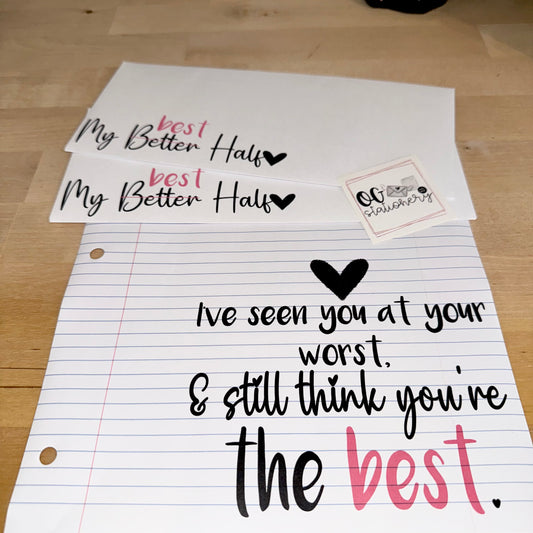 best
My Better Half
best
My Better Half
OG
stationery
I've seen you at your
worst,
& still think you're
the best.